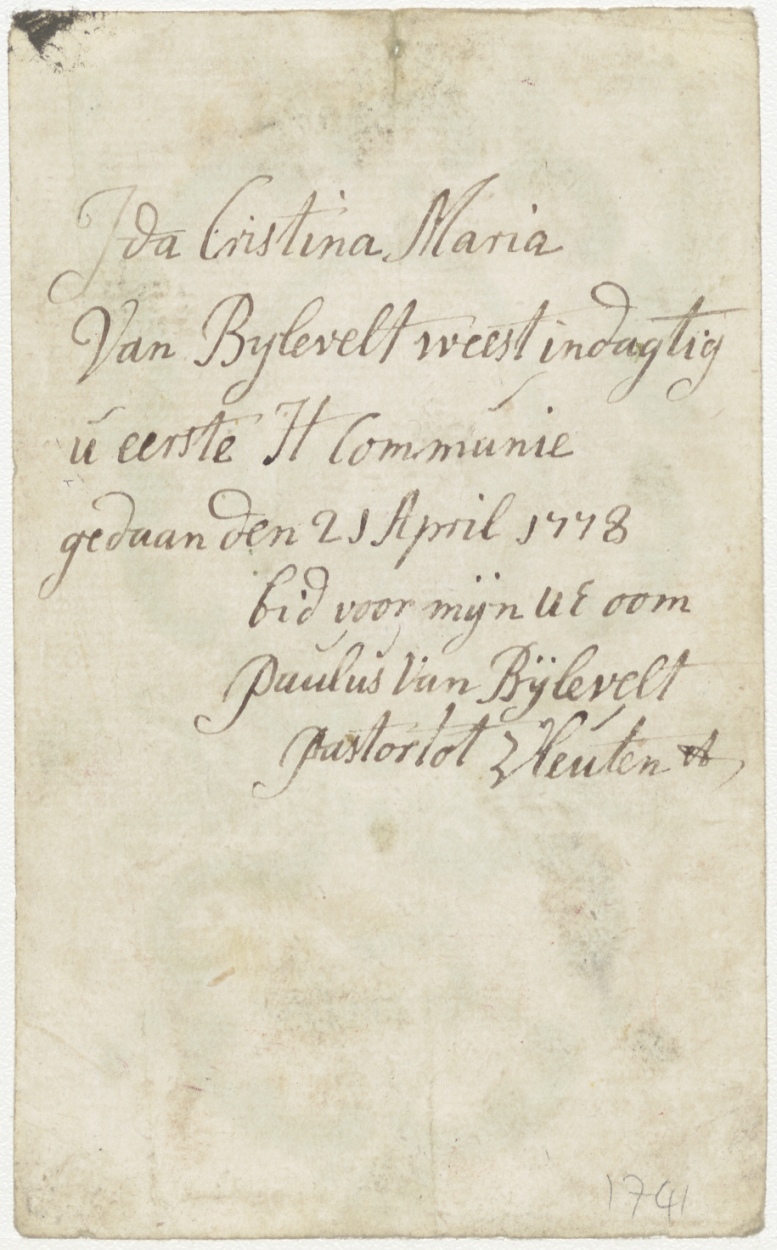 Ida Cristina Maria
Van Bylevelt weest indagtig
ú eerste H Communie
gedaan den 21 April 1778
bid voor mijn UE oom
paulus Van Bÿlevelt
pastor tot Vleúten
1741